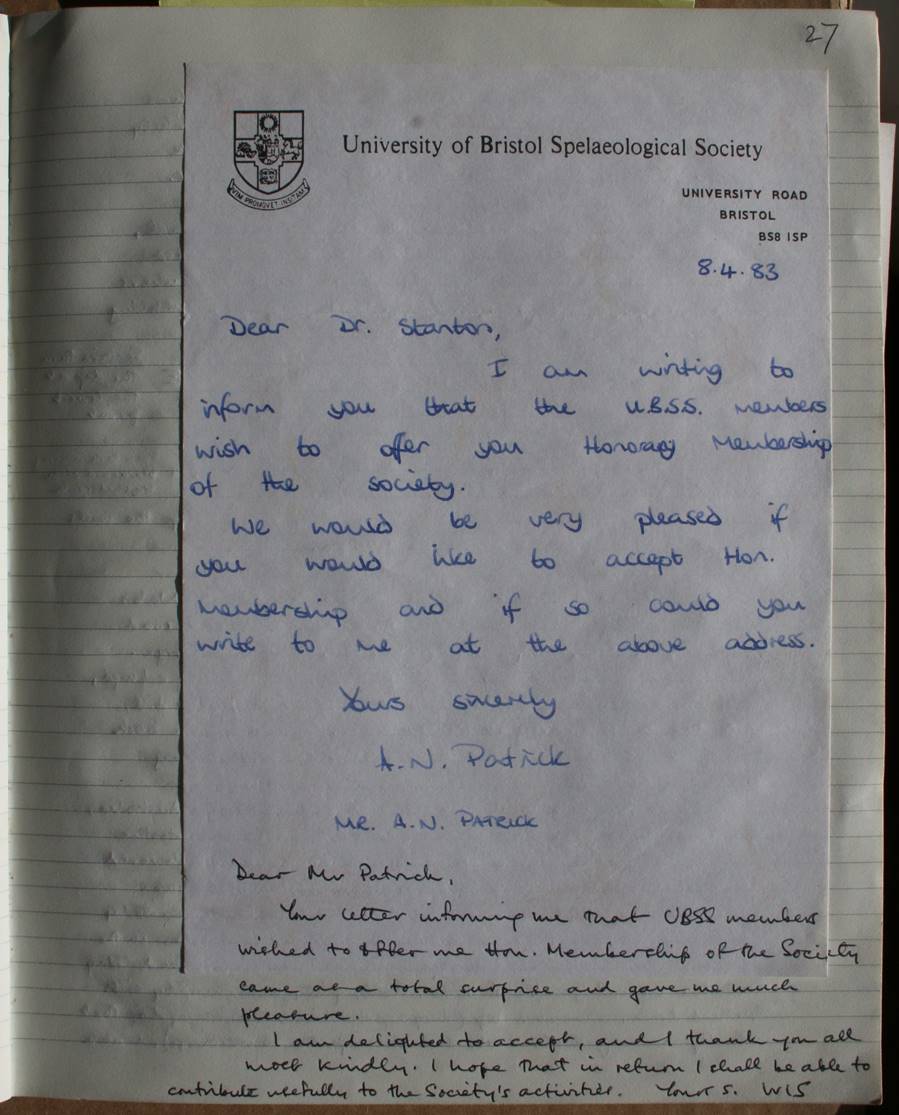 27
University of Bristol Spelaeological Society
VIM PROMOVET INSITAM
UNIVERSITY ROAD
BRISTOL
BS8 1SP
8.4.83
Dear Dr. Stanton,
I am writing to
inform you that the U.B.S.S. members
wish to offer you Honorary Membership
of the society.
We would be very pleased if
you would like to accept Hon.
Membership and if so could you
write to me at the above address.
Yours sincerely
A.N. Patrick
MR. A.N. PATRICK
Dear Mr Patrick,
Your letter informing me that UBSS members
wished to offer me Hon. Membership of the Society
came as a total surprise and gave me much
pleasure.
I am delighted to accept, and I thank you all
most kindly. I hope that in return I shall be able to
contribute usefully to the Society's activities. Yours s. WIS